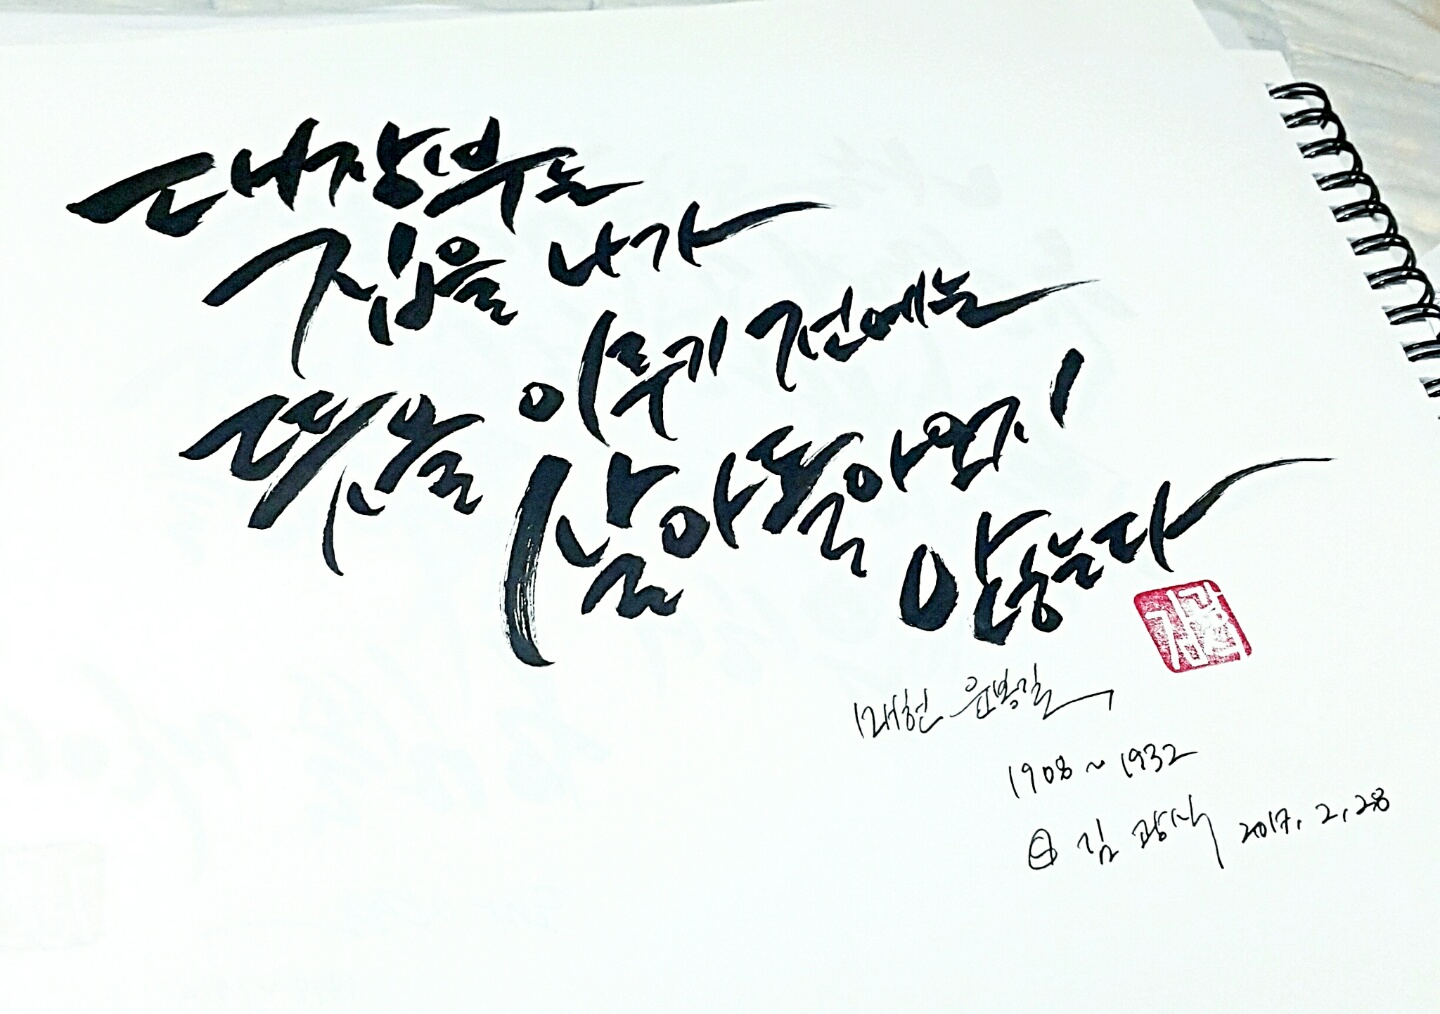 대장부는
집을 나가
뜻을 이루기 전에는
살아 돌아오지
않는다
매헌 윤봉길
1908~1932
김광식 2017. 2. 28